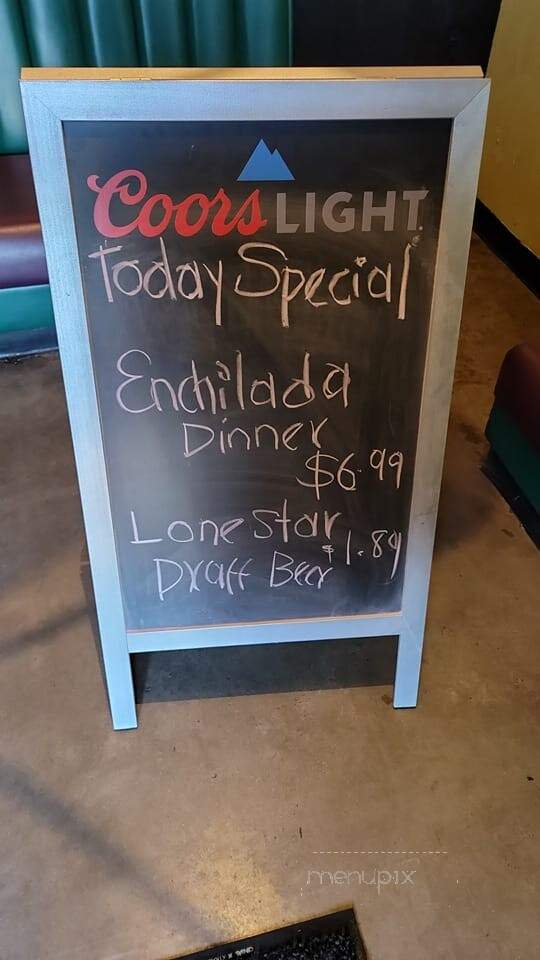 Coors LIGHT
Today Special
Enchilada
Dinner
$6.99
Lone Star
$1.89
Draff Beer
menupix